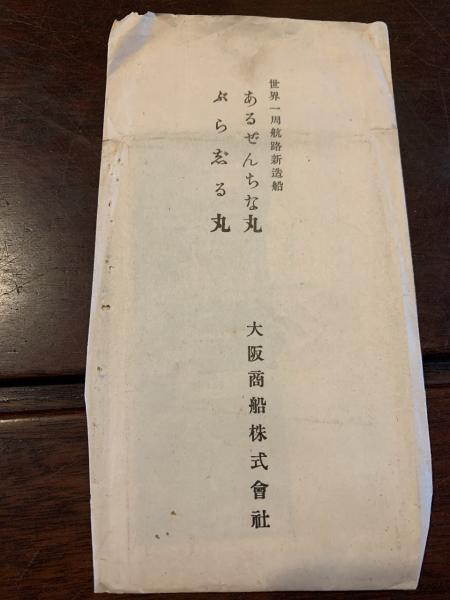 世界一周航路新造船
あるぜんちな丸
ぶら志る丸
大阪商船株式會社